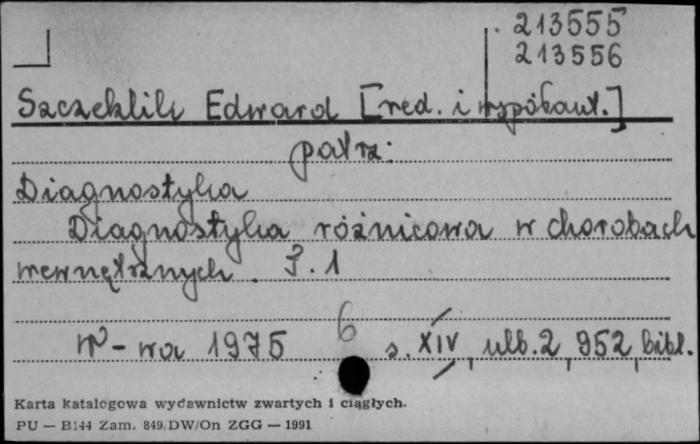 213555
213556
Szczeklik Edward [red. i współaut.]
patrz:
Diagnostyka
Diagnostyka różnicowa w chorobach
wewnętrznych. T. 1
W-wa 1975 6 s. XIV, ulb. 2, 952, bibl.
Karta katalogowa wydawnictw zwartych i ciągłych.
PU — B144 Zam. 849/DW/On ZGG — 1991